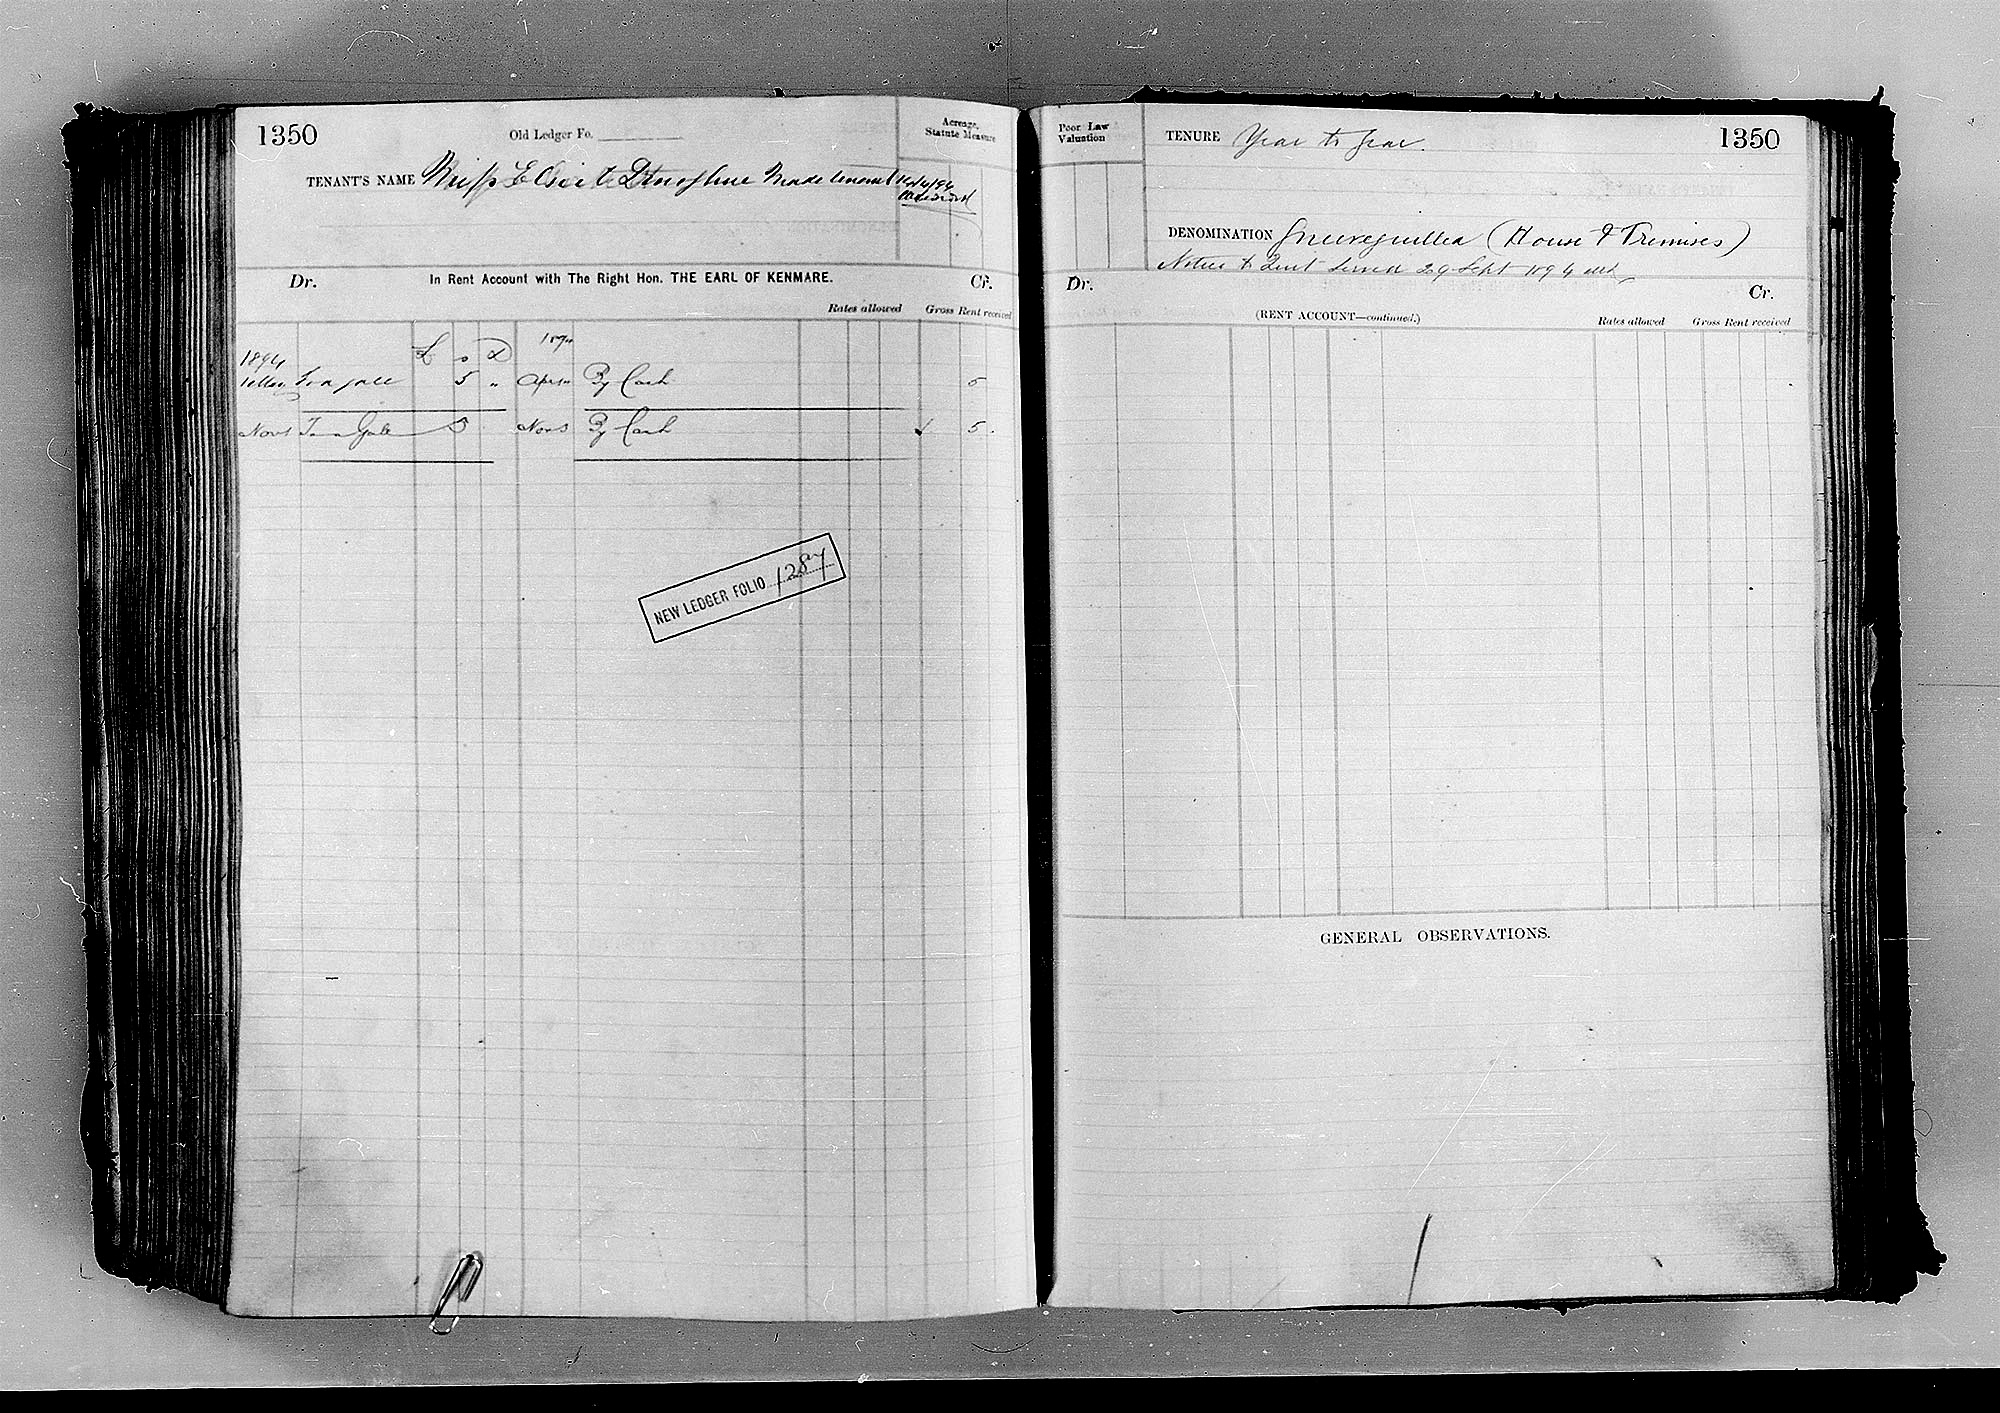 1350
Old Ledger Fo.
Acreage,
Statute Measure
TENANT'S NAME Miss Donoghue Made tenant
DENOMINATION
In Rent Account with The Right Hon. THE EARL OF KENMARE.
Dr. Cr.
Rates allowed Gross Rent received
£ s D
1894 1894
To a gale 5 " By Cash 5
Nov 1 To a Gale 5 Nov By Cash 5
NEW LEDGER FOLIO 1287
Poor Law
Valuation
TENURE Year to year.
1350
DENOMINATION Gneeveguilla (House & Premises)
Notice to Quit served 29 Sept 1894
Dr. Cr.
(RENT ACCOUNT—continued.)
Rates allowed Gross Rent received
GENERAL OBSERVATIONS.